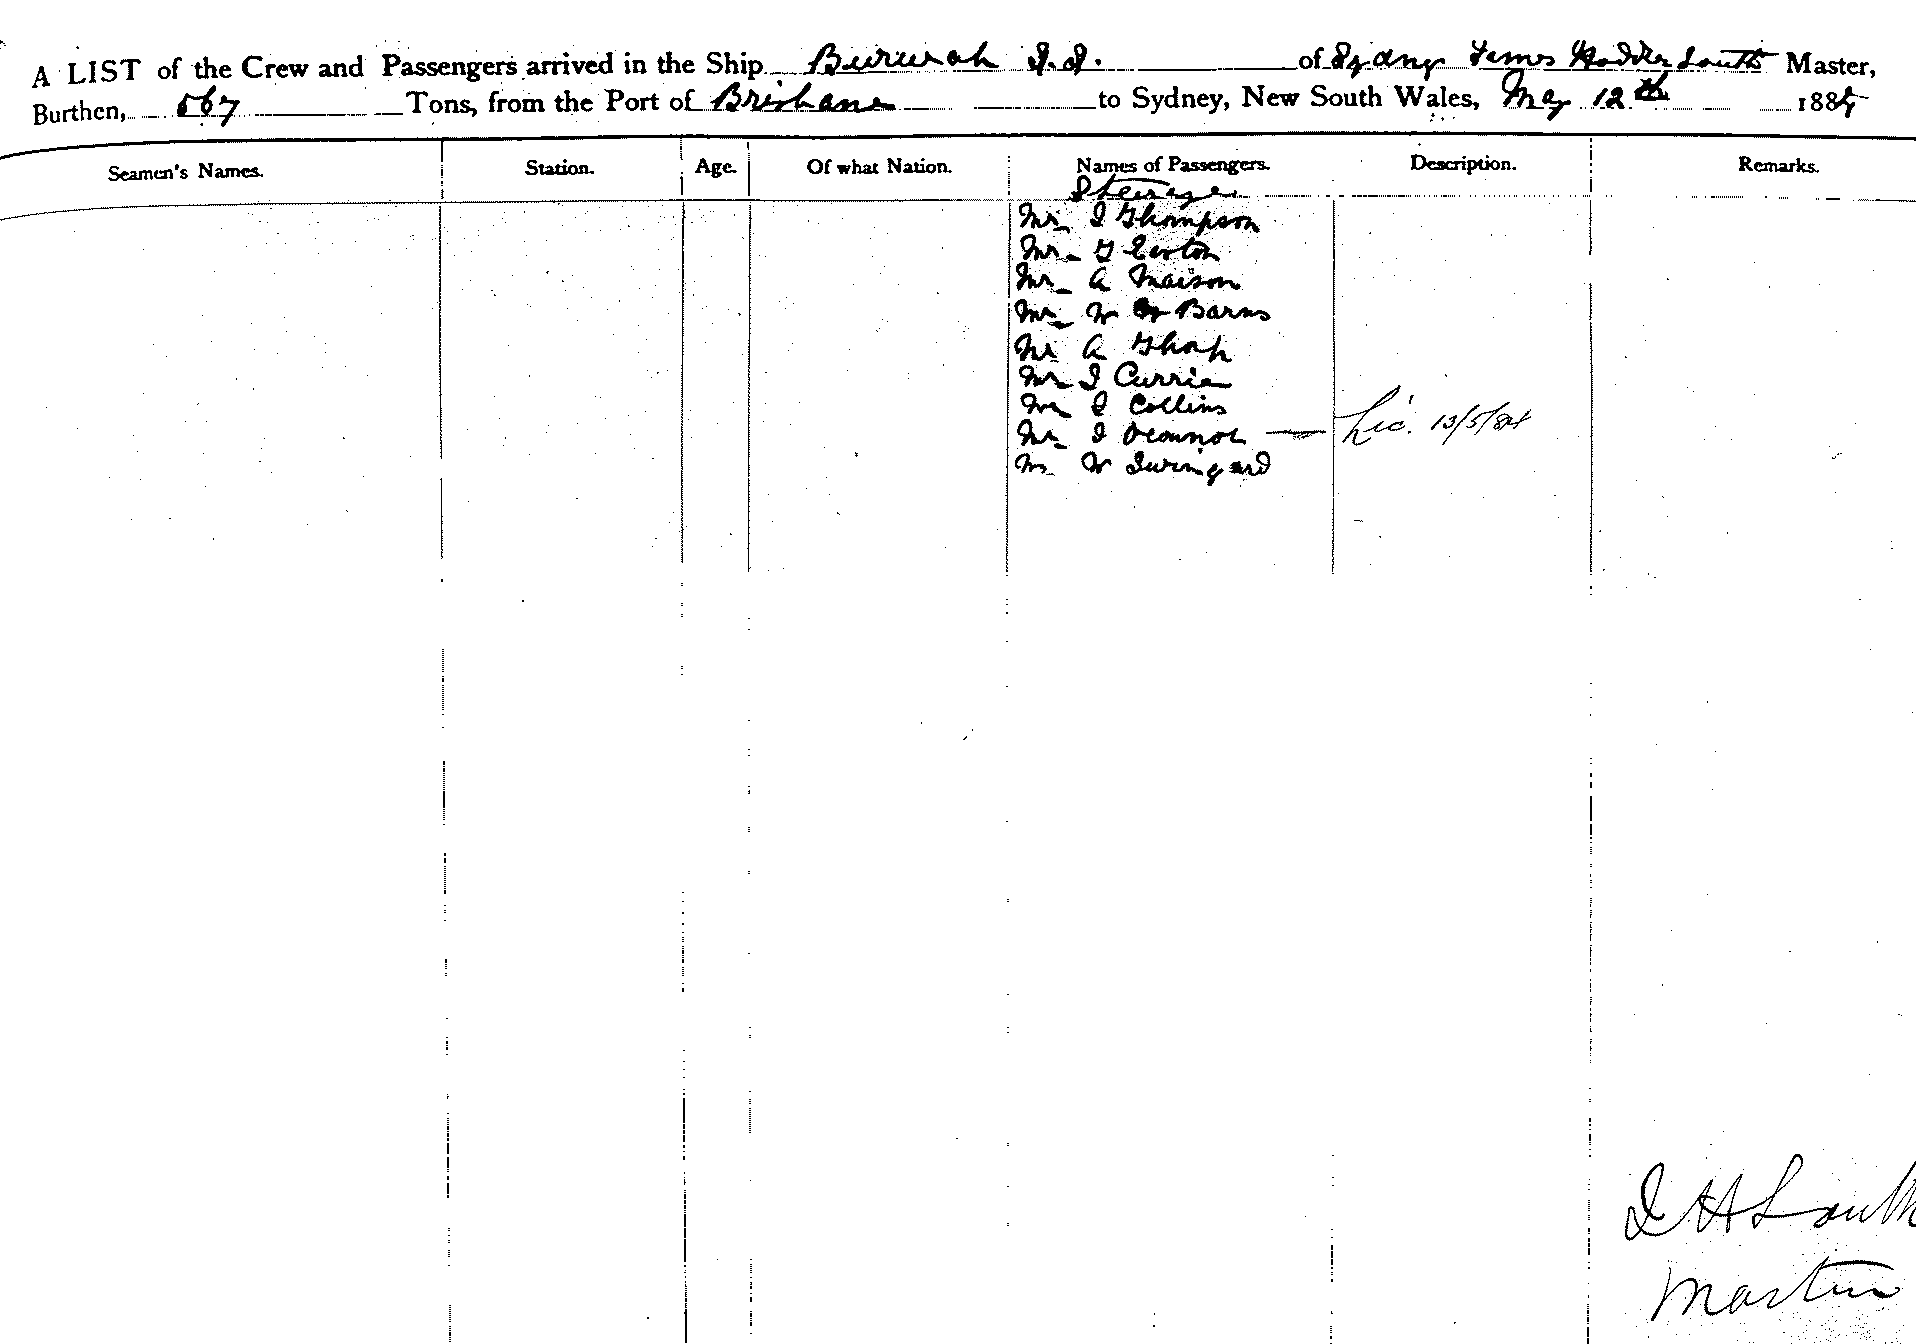 A LIST of the Crew and Passengers arrived in the Ship Burwah S.S. of Sydney James Hodder South Master,
Burthen, 567 Tons, from the Port of Brisbane to Sydney, New South Wales, May 12th 1884
Seamen's Names. Station. Age. Of what Nation. Names of Passengers. Description. Remarks.
Steerage
Mr J Thompson
Mr
Mr A Maison
Mr W Barns
Mr A
Mr J Currie
Mr J Collins
Mr J Oconnor — Lic. 13/5/84
Mr W
J H South
Master